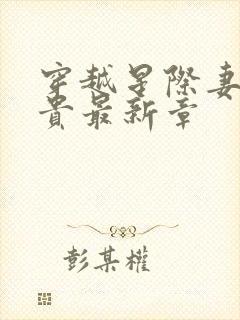 穿越星際妻
貴最新章
彭某權